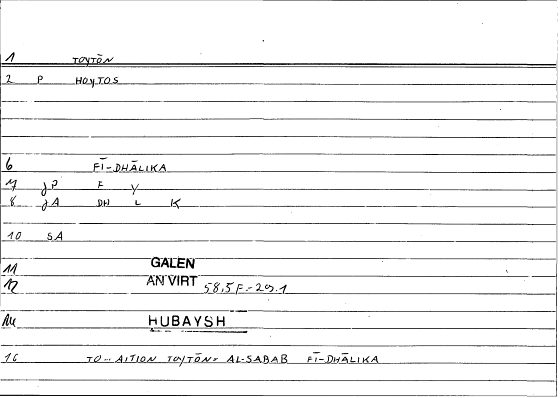 1 TOYTŌN
2 P HOYTOS
6 FĪ-DHĀLIKA
7 JP F Y
8 JA DH L K
10 SA
11 GALEN
12 AN VIRT 58.5 F.-29.1
14 HUBAYSH
16 TO-- AITION TOYTŌN= AL-SABAB FĪ-DHĀLIKA